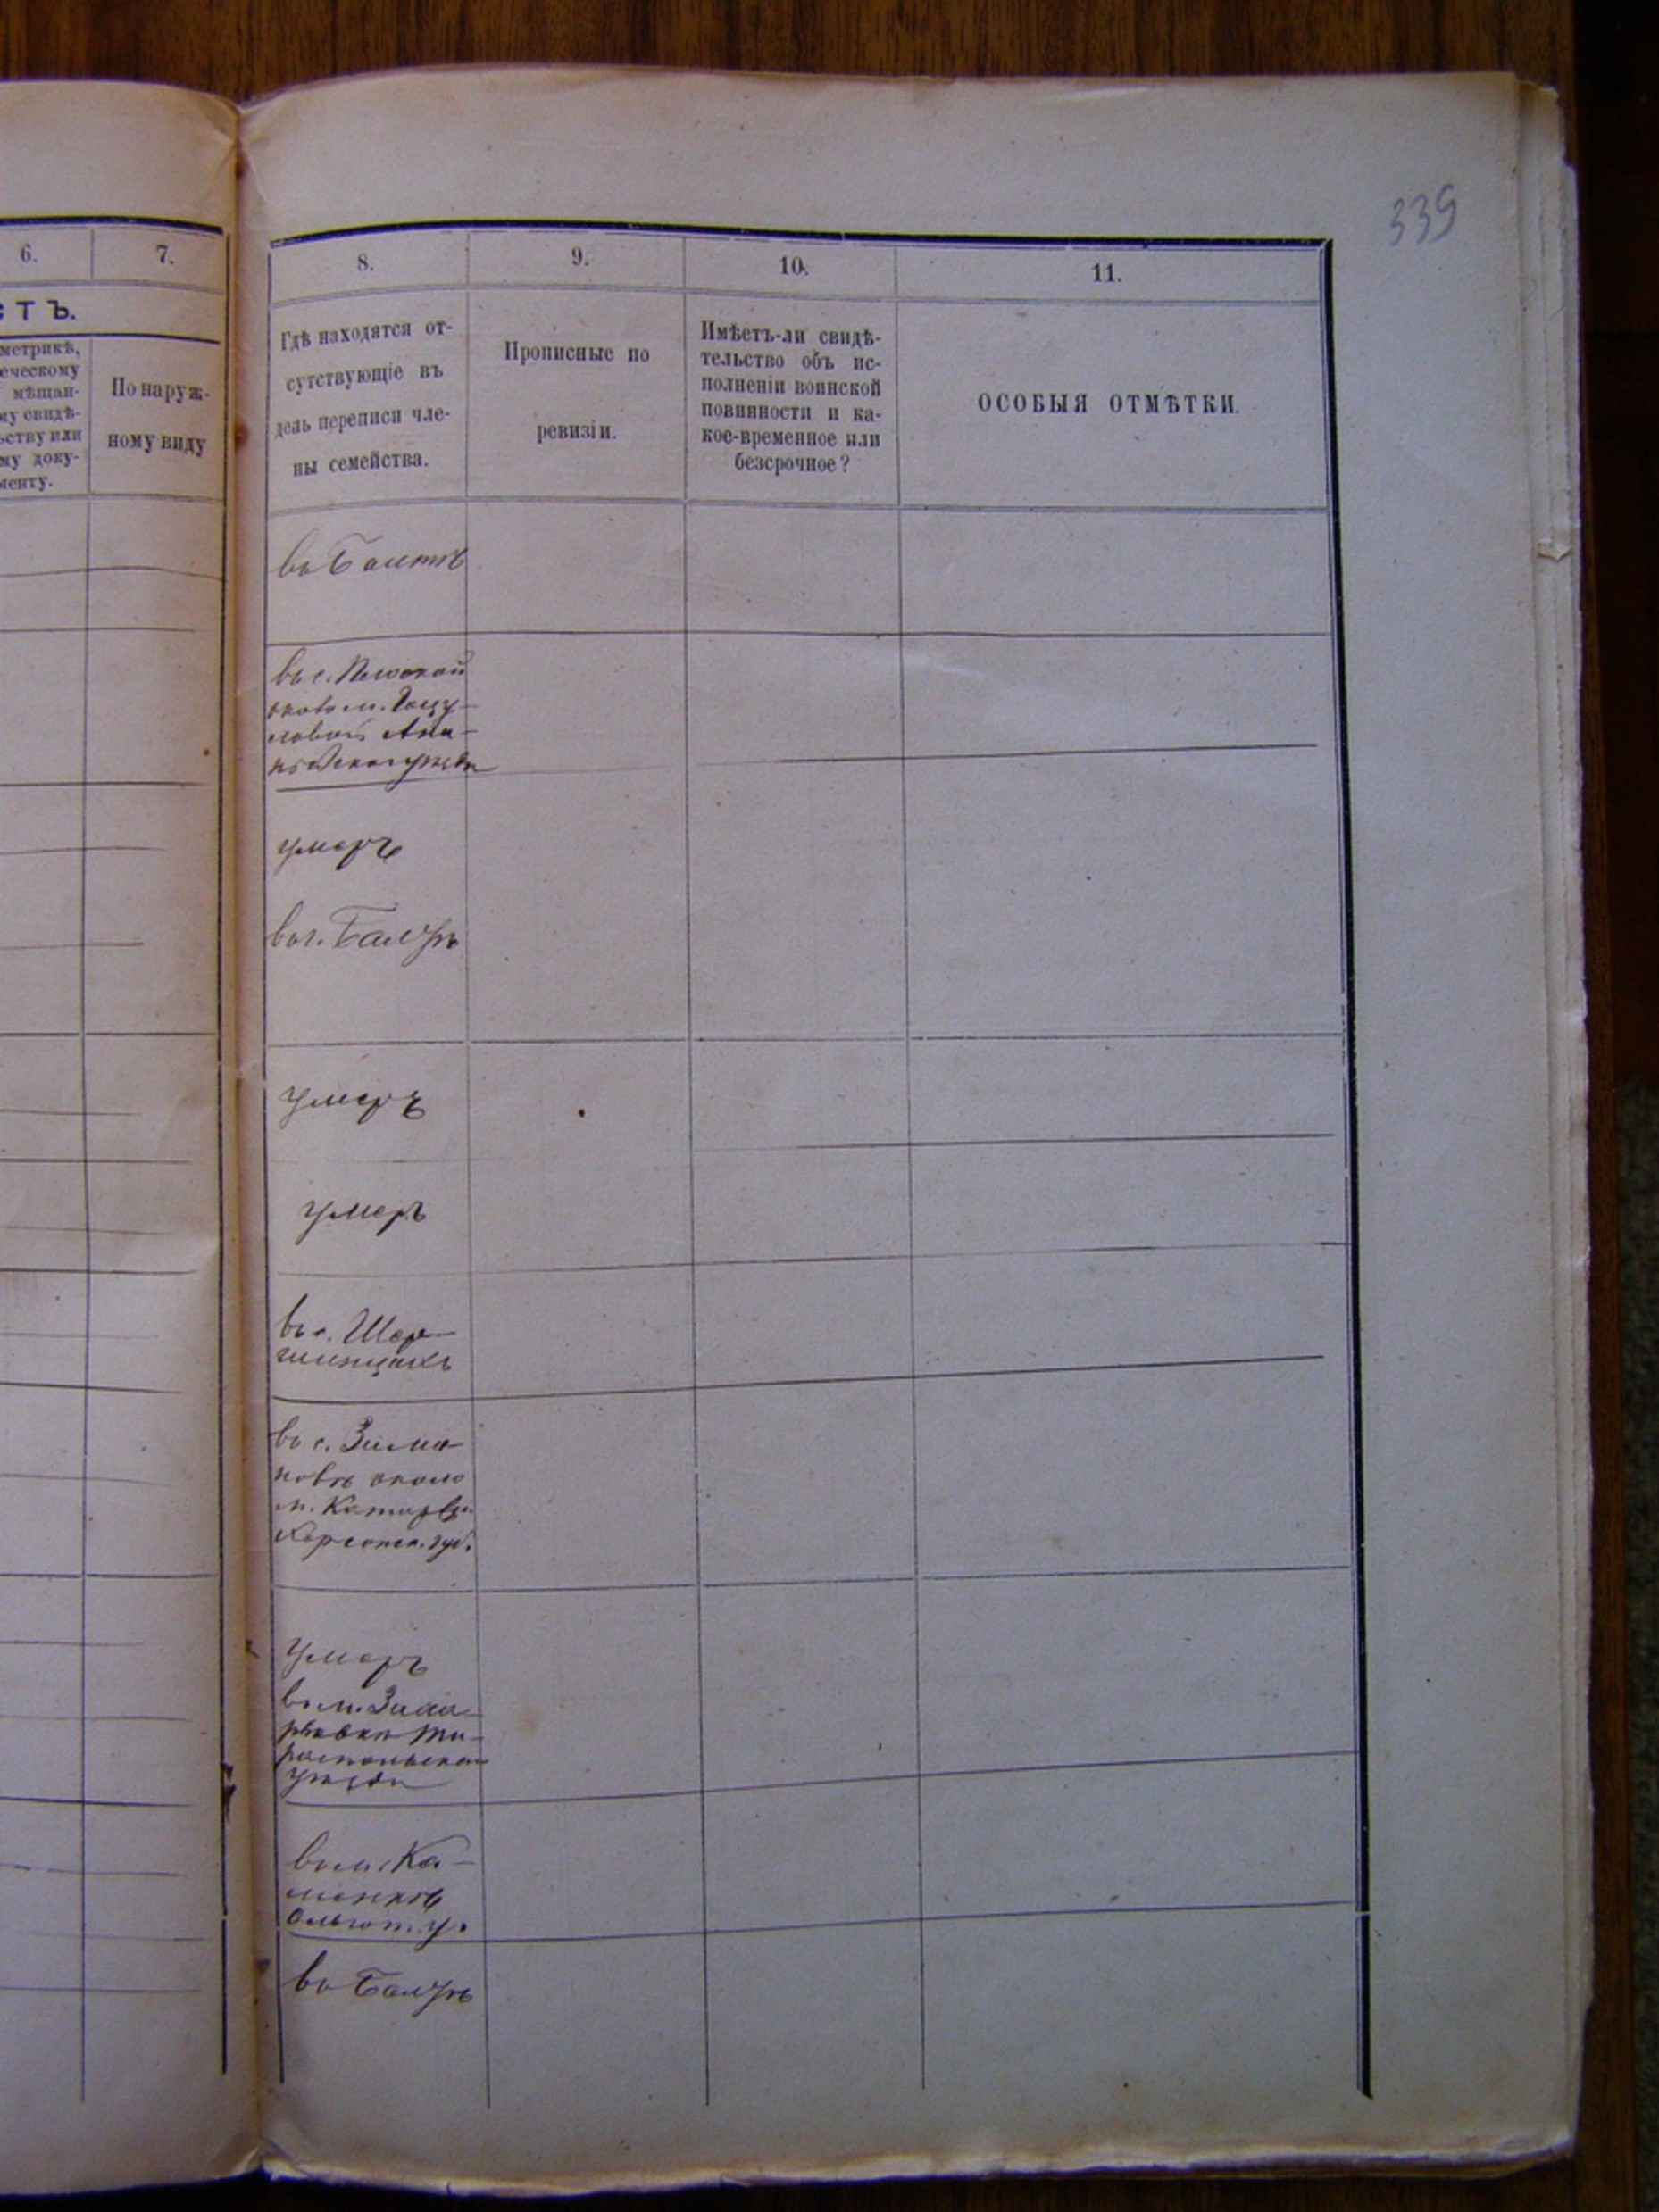 339
6.
7.
СТЪ.
метрикѣ,
еческому
мѣщан-
му свидѣ-
ьству или
му доку-
менту.
По наруж-
ному виду
8.
9.
10.
11.
Гдѣ находятся от-
сутствующіе въ
день переписи чле-
ны семейства.
Прописные по
ревизіи.
Имѣетъ-ли свидѣ-
тельство объ ис-
полненіи воинской
повинности и ка-
кое-временное или
безсрочное?
ОСОБЫЯ ОТМѢТКИ.
въ Балтѣ
въ с.
около м. Гоцу-
ловой Ана-
ньевскаго уѣзда
умеръ
въ г. Балтѣ
умеръ
умеръ
въ с. Шер-
въ с. Зима
новѣ около
м. Катаржи
Херсонск. губ.
умеръ
въ м. Заха-
рьевка Ти-
распольскаго
уѣзда
въ м. Ка-
менкѣ
Ольгоп. у.
въ Балтѣ